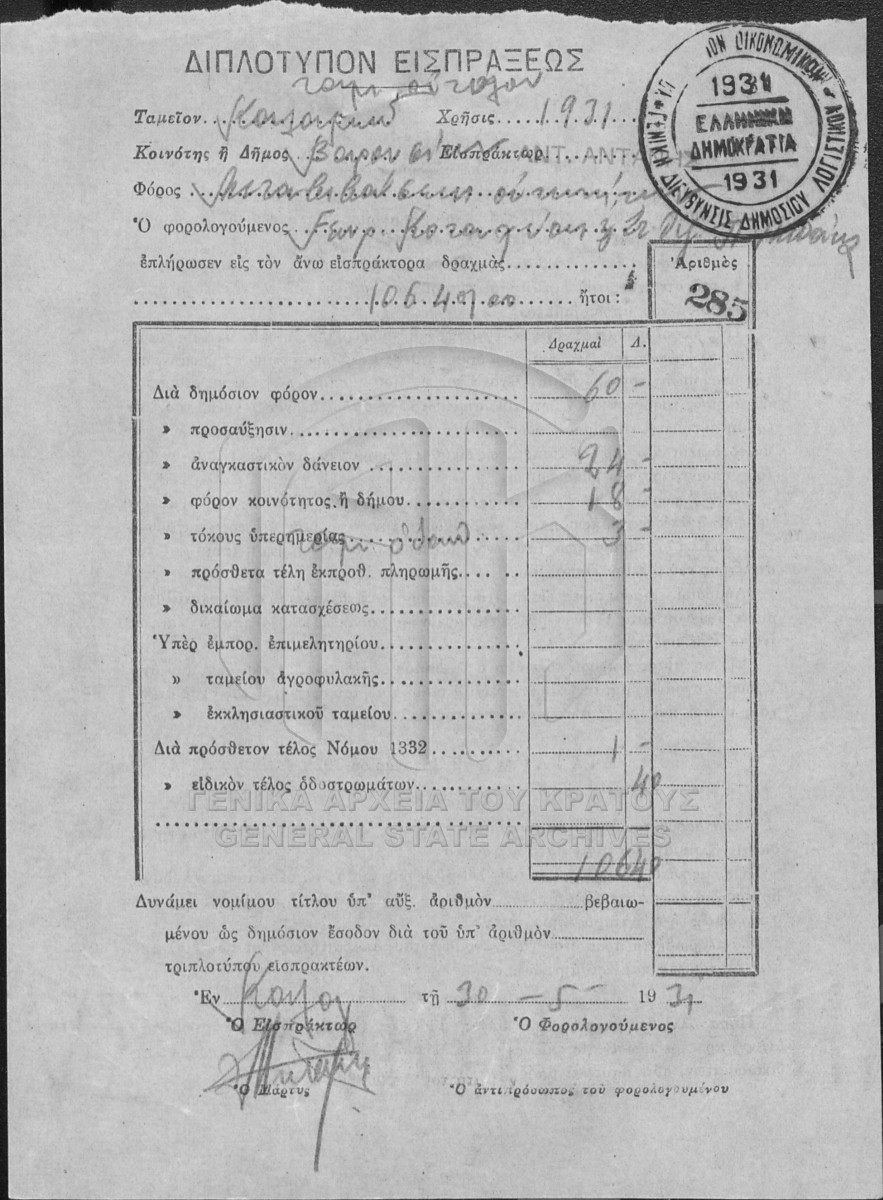 ΔΙΠΛΟΤΥΠΟΝ ΕΙΣΠΡΑΞΕΩΣ
Ταμεῖον Χρῆσις 1931
Κοινότης ἢ Δῆμος Εἰσπράκτωρ
Φόρος
Ὁ φορολογούμενος
ἐπλήρωσεν εἰς τὸν ἄνω εἰσπράκτορα δραχμὰς
106 40 ἤτοι :
Ἀριθμὸς
285
1931
ΕΛΛΗΝΙΚΗ
ΔΗΜΟΚΡΑΤΙΑ
1931
ΔΙΕΥΘΥΝΣΙΣ ΔΗΜΟΣΙΟΥ ΛΟΓΙΣΤΙΚΟΥ
Δραχμαὶ Λ.
Διὰ δημόσιον φόρον 60 -
» προσαύξησιν
» ἀναγκαστικὸν δάνειον 24 -
» φόρον κοινότητος ἢ δήμου 18 -
» τόκους ὑπερημερίας 3 -
» πρόσθετα τέλη ἐκπροθ. πληρωμῆς
» δικαίωμα κατασχέσεως
Ὑπὲρ ἐμπορ. ἐπιμελητηρίου
» ταμείου ἀγροφυλακῆς
» ἐκκλησιαστικοῦ ταμείου
Διὰ πρόσθετον τέλος Νόμου 1332 1 -
» εἰδικὸν τέλος ὁδοστρωμάτων 40
ΓΕΝΙΚΑ ΑΡΧΕΙΑ ΤΟΥ ΚΡΑΤΟΥΣ
GENERAL STATE ARCHIVES
106 40
Δυνάμει νομίμου τίτλου ὑπ' αὔξ. ἀριθμὸν βεβαιω-
μένου ὡς δημόσιον ἔσοδον διὰ τοῦ ὑπ' ἀριθμὸν
τριπλοτύπου εἰσπρακτέων.
Ἐν τῇ 30 - 5 - 1931
Ὁ Εἰσπράκτωρ Ὁ Φορολογούμενος
Ὁ Μάρτυς Ὁ ἀντιπρόσωπος τοῦ φορολογουμένου